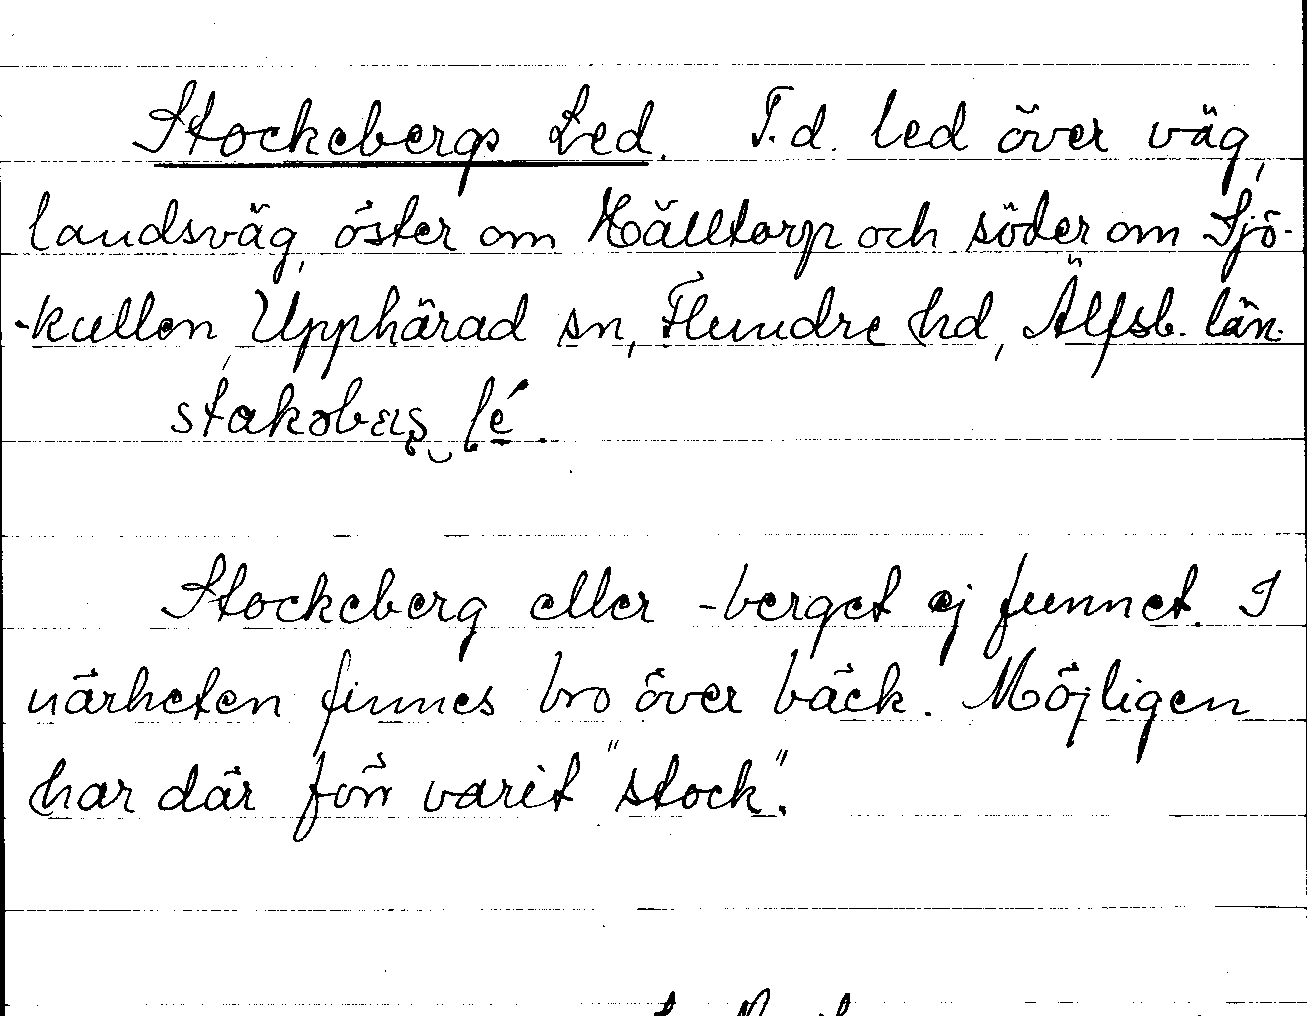 Stockebergs Led. F.d. led över väg,
landsväg, öster om Hälltorp och söder om Sjö-
-kullen, Upphärad sn, Flundre hd, Älfsb. län.
Stockeberg eller -berget ej funnet. I
närheten finnes bro över bäck. Möjligen
har där förr varit "stock".